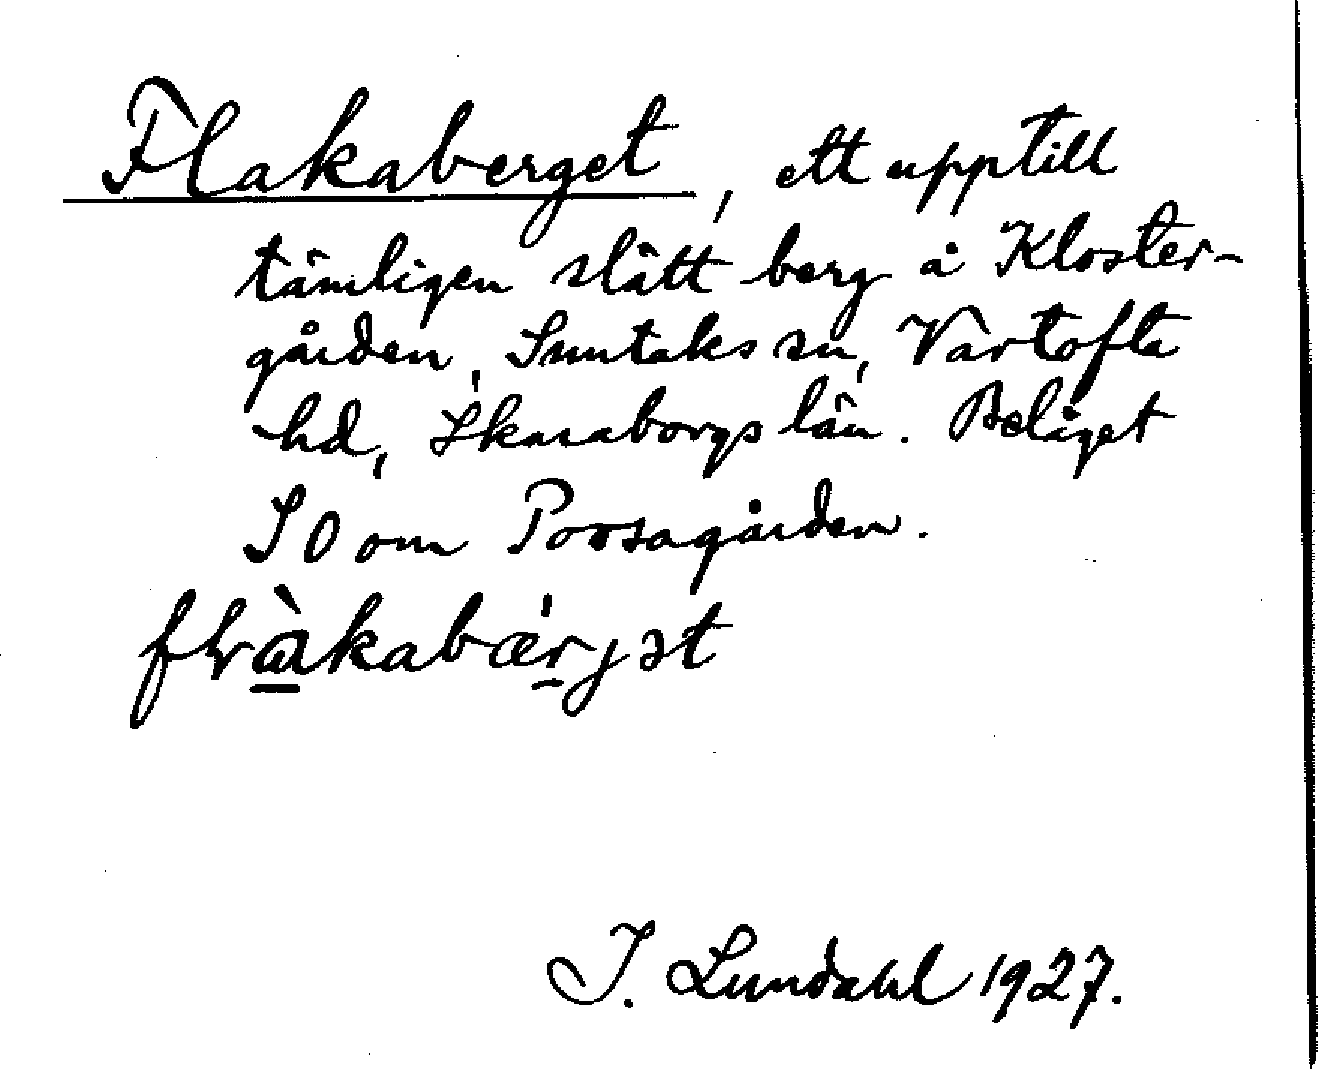 Flakaberget, ett upptill
tämligen slätt berg å Kloster-
gården, Suntaks sn, Vartofta
hd, Skaraborgs län. Beläget
SO om Povsagården.
J. Lundahl 1927.